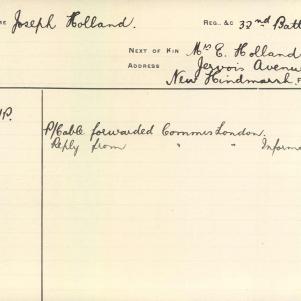 ME Joseph Holland. REG. &C 32nd Batt
NEXT OF KIN Mrs E. Holland
ADDRESS Jervois Avenue
New Hindmarsh.
P.
P/Cable forwarded Commis London.
Reply from " " Informa